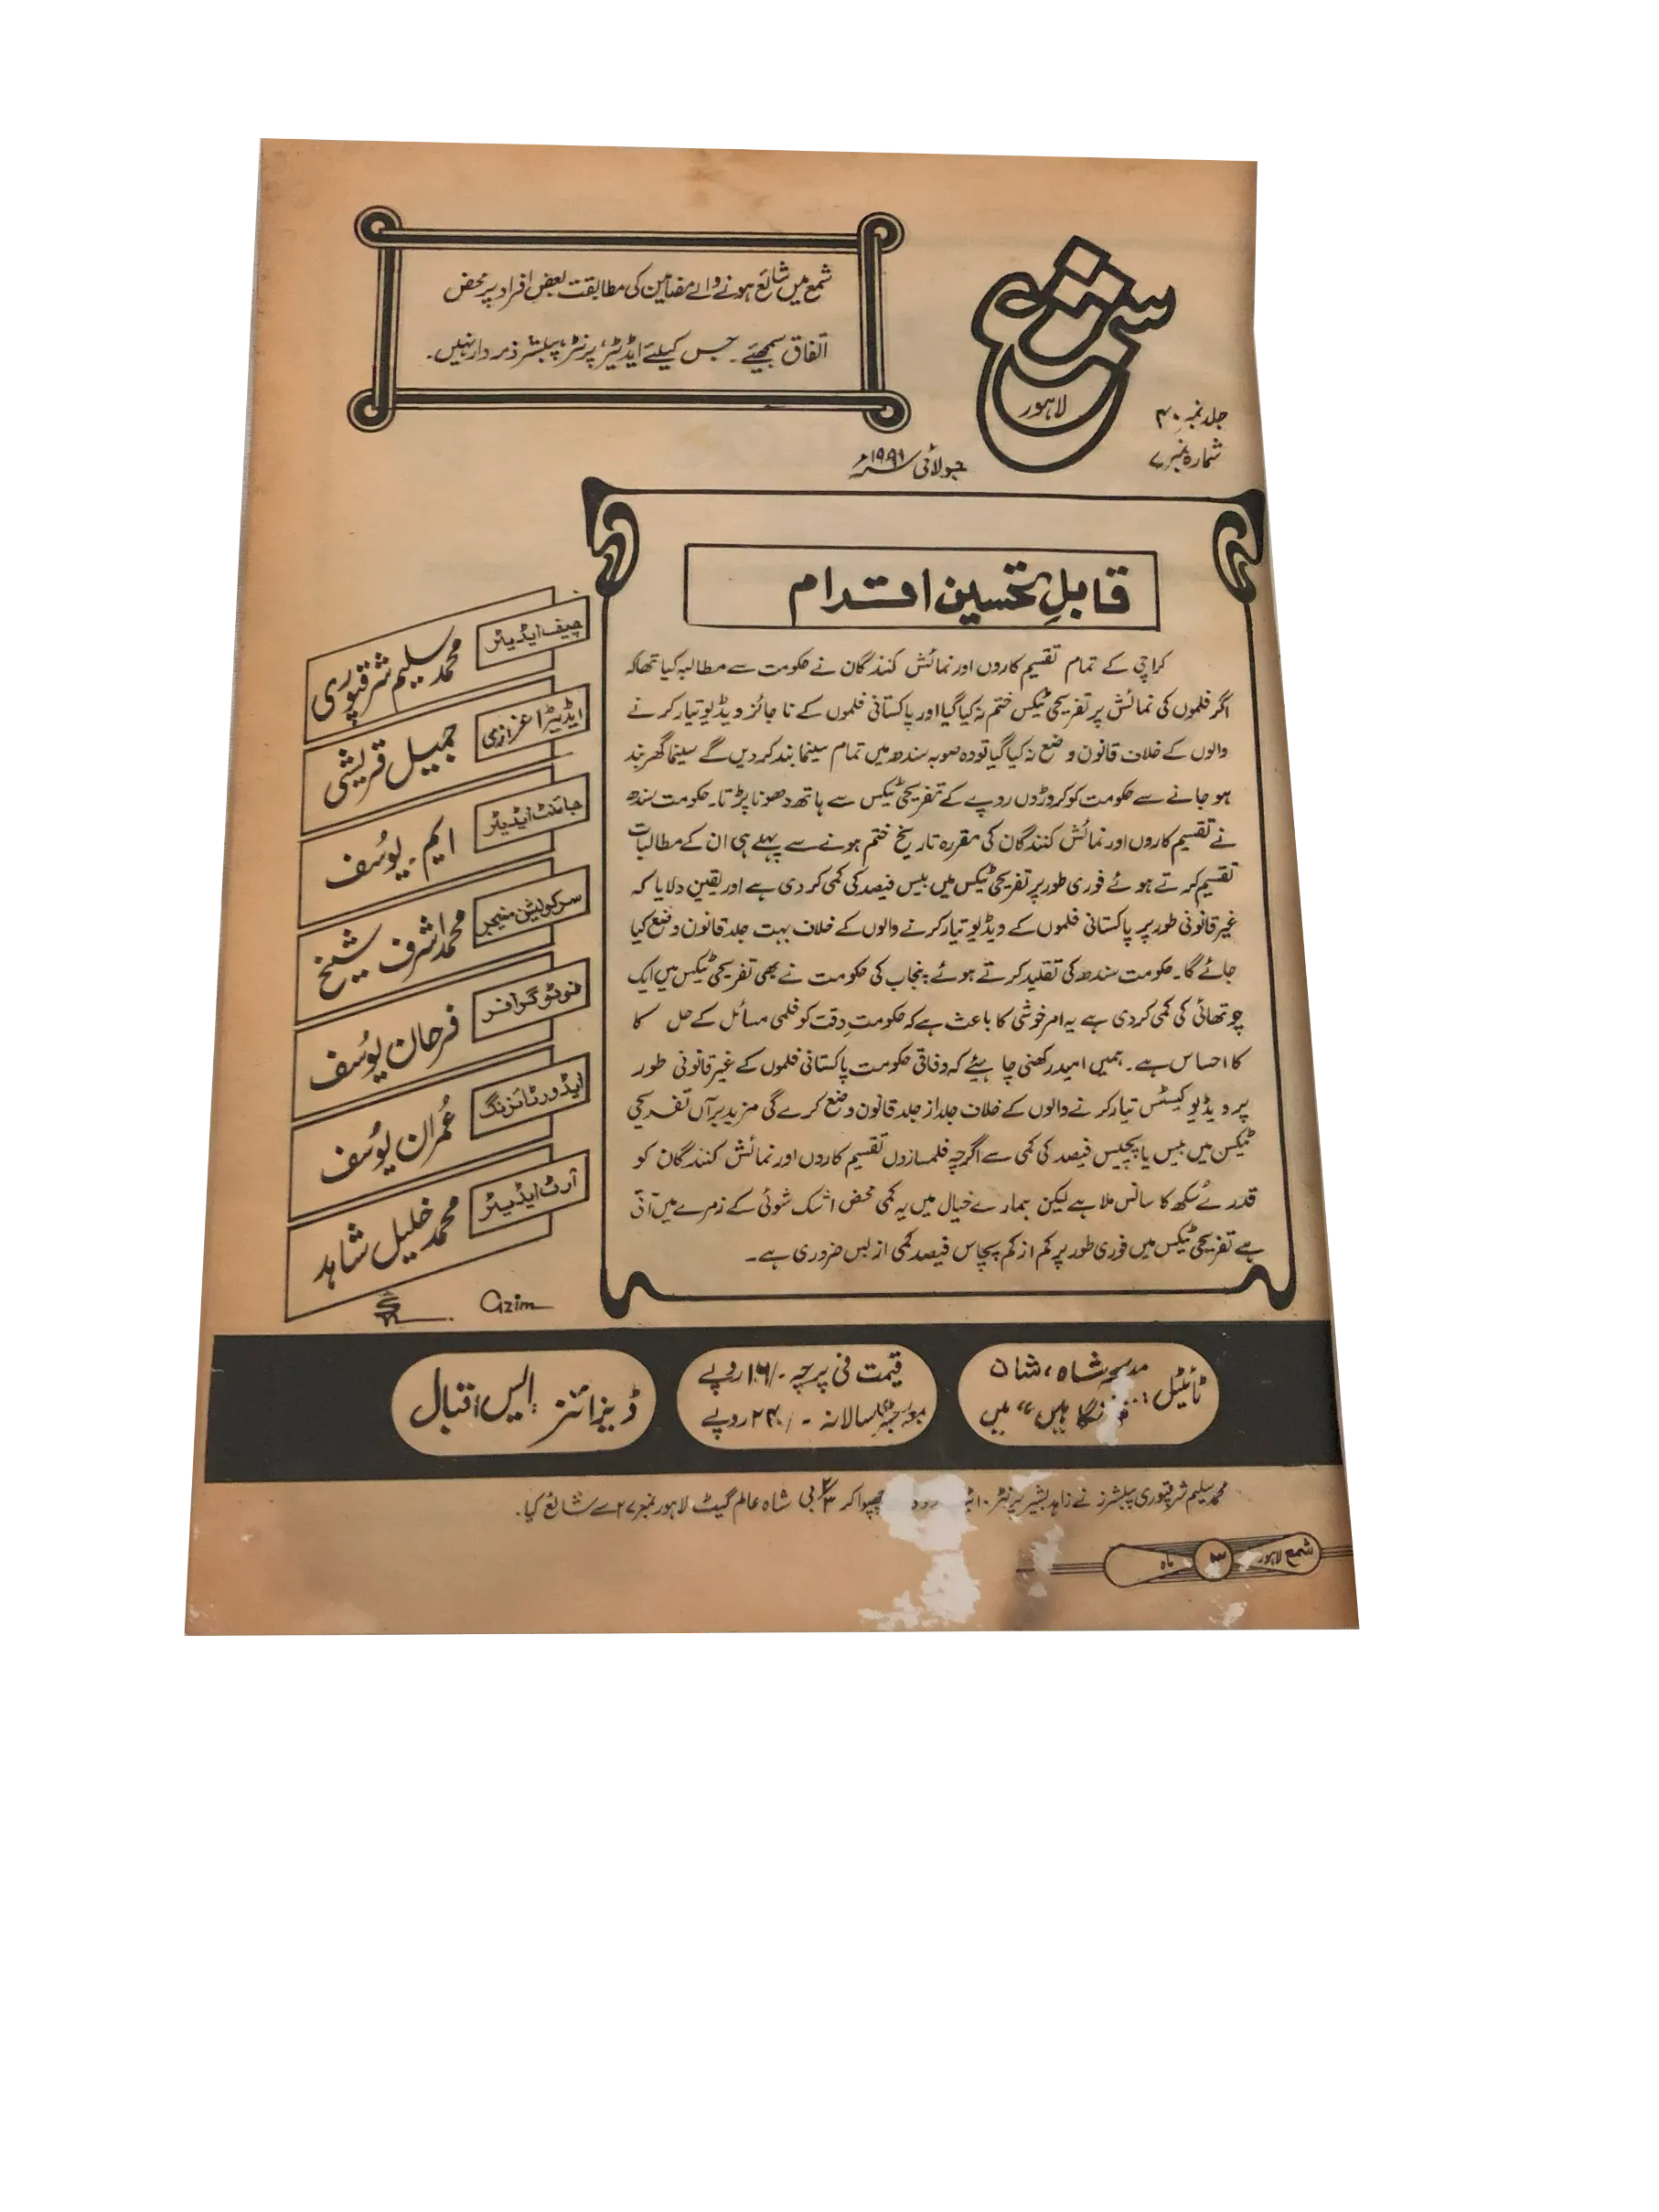 شمع میں شائع ہونے والے مضامین کی مطابقت بعض افراد پر محض
اتفاق سمجھئے۔ جس کیلئے ایڈیٹر، پرنٹر، پبلشر ذمہ دار نہیں۔
شمع
لاہور
جلد نمبر ۴۰
شمارہ نمبر ۷
جولائی ۱۹۹۱ء
قابلِ تحسین اقدام
کراچی کے تمام تقسیم کاروں اور نمائش کنندگان نے حکومت سے مطالبہ کیا تھا کہ
اگر فلموں کی نمائش پر تفریحی ٹیکس ختم نہ کیا گیا اور پاکستانی فلموں کے ناجائز ویڈیو تیار کرنے
والوں کے خلاف قانون وضع نہ کیا گیا تو وہ صوبہ سندھ میں تمام سینما بند کر دیں گے سینما گھر بند
ہو جانے سے حکومت کو کروڑوں روپے کے تفریحی ٹیکس سے ہاتھ دھونا پڑتا۔ حکومت سندھ
نے تقسیم کاروں اور نمائش کنندگان کی مقررہ تاریخ ختم ہونے سے پہلے ہی ان کے مطالبات
تقسیم کرتے ہوئے فوری طور پر تفریحی ٹیکس میں بیس فیصد کی کمی کر دی ہے اور یقین دلایا کہ
غیر قانونی طور پر پاکستانی فلموں کے ویڈیو تیار کرنے والوں کے خلاف بہت جلد قانون وضع کیا
جائے گا۔ حکومت سندھ کی تقلید کرتے ہوئے پنجاب کی حکومت نے بھی تفریحی ٹیکس میں ایک
چوتھائی کی کمی کر دی ہے یہ امر خوشی کا باعث ہے کہ حکومتِ وقت کو فلمی مسائل کے حل کا
کا احساس ہے۔ ہمیں امید رکھنی چاہیئے کہ وفاقی حکومت پاکستانی فلموں کے غیر قانونی طور
پر ویڈیو کیسٹس تیار کرنے والوں کے خلاف جلد از جلد قانون وضع کرے گی مزید برآں تفریحی
ٹیکس میں بیس یا پچیس فیصد کی کمی سے اگرچہ فلمسازوں تقسیم کاروں اور نمائش کنندگان کو
قدرے سکھ کا سانس ملا ہے لیکن ہمارے خیال میں یہ کمی محض اشک شوئی کے زمرے میں آتی
ہے تفریحی ٹیکس میں فوری طور پر کم از کم پچاس فیصد کمی از بس ضروری ہے۔
چیف ایڈیٹر
محمد سلیم شرقپوری
ایڈیٹر اعزازی
جمیل قریشی
جائنٹ ایڈیٹر
ایم۔ یوسف
سرکولیشن منیجر
محمد اشرف شیخ
فوٹو گرافر
فرحان یوسف
ایڈورٹائزنگ
عمران یوسف
آرٹ ایڈیٹر
محمد خلیل شاہد
Azim
ٹائیٹل: مدیحہ شاہ، شان
نگاہیں“ میں
قیمت فی پرچہ -/۱۶ روپے
سالانہ -/۲۴۰ روپے
ڈیزائنر ایس اقبال
محمد سلیم شرقپوری پبلشرز نے زاہد بشیر پرنٹر ۱۰ چھپوا کر ۲/۳ بی شاہ عالم گیٹ لاہور نمبر ۲۷ سے شائع کیا۔
شمع لاہور ۳ ماہ